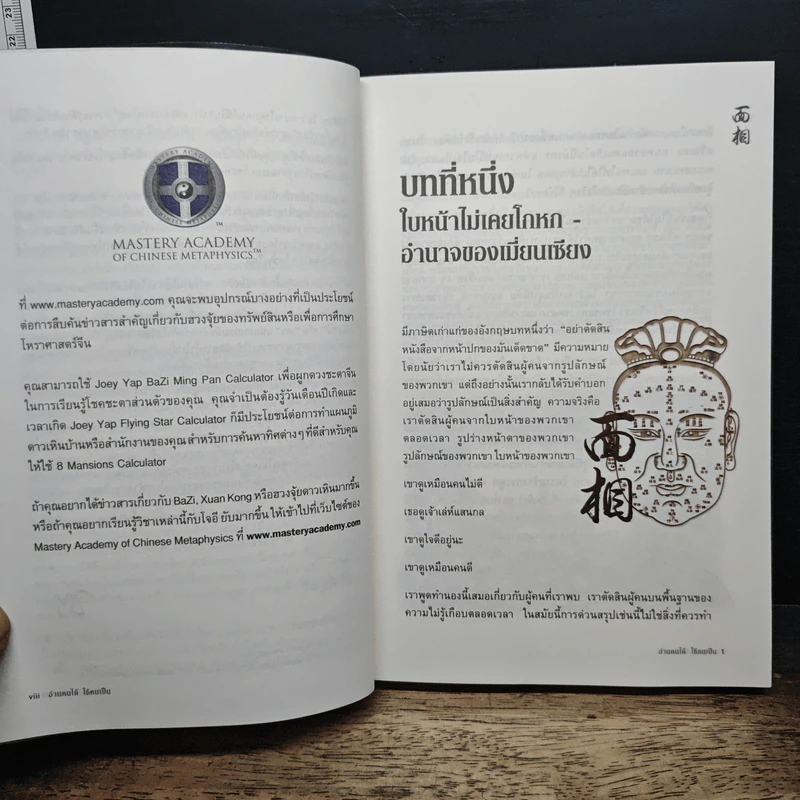 22
23
MASTERY ACADEMY
CHINESE METAPHYSICS
TM
MASTERY ACADEMY
OF CHINESE METAPHYSICS™
ที่ www.masteryacademy.com คุณจะพบอุปกรณ์บางอย่างที่เป็นประโยชน์
ต่อการสืบค้นข่าวสารสำคัญเกี่ยวกับฮวงจุ้ยของทรัพย์สินหรือเพื่อการศึกษา
โหราศาสตร์จีน
คุณสามารถใช้ Joey Yap BaZi Ming Pan Calculator เพื่อผูกดวงชะตาจีน
ในการเรียนรู้โชคชะตาส่วนตัวของคุณ คุณจำเป็นต้องรู้วันเดือนปีเกิดและ
เวลาเกิด Joey Yap Flying Star Calculator ก็มีประโยชน์ต่อการทำแผนภูมิ
ดาวเหินบ้านหรือสำนักงานของคุณ สำหรับการค้นหาทิศต่างๆ ที่ดีสำหรับคุณ
ให้ใช้ 8 Mansions Calculator
ถ้าคุณอยากได้ข่าวสารเกี่ยวกับ BaZi, Xuan Kong หรือฮวงจุ้ยดาวเหินมากขึ้น
หรือถ้าคุณอยากเรียนรู้วิชาเหล่านี้กับโจอี ยับมากขึ้น ให้เข้าไปที่เว็บไซต์ของ
Mastery Academy of Chinese Metaphysics ที่ www.masteryacademy.com
viii อ่านคนได้ ใช้คนเป็น
面相
บทที่หนึ่ง
ใบหน้าไม่เคยโกหก -
อำนาจของเมี่ยนเซียง
มีภาษิตเก่าแก่ของอังกฤษบทหนึ่งว่า "อย่าตัดสิน
หนังสือจากหน้าปกของมันเด็ดขาด" มีความหมาย
โดยนัยว่าเราไม่ควรตัดสินผู้คนจากรูปลักษณ์
ของพวกเขา แต่ถึงอย่างนั้นเรากลับได้รับคำบอก
อยู่เสมอว่ารูปลักษณ์เป็นสิ่งสำคัญ ความจริงคือ
เราตัดสินผู้คนจากใบหน้าของพวกเขา
ตลอดเวลา รูปร่างหน้าตาของพวกเขา
รูปลักษณ์ของพวกเขา ใบหน้าของพวกเขา
面相
เขาดูเหมือนคนไม่ดี
เธอดูเจ้าเล่ห์แสนกล
เขาดูใจดีอยู่นะ
เขาดูเหมือนคนดี
เราพูดทำนองนี้เสมอเกี่ยวกับผู้คนที่เราพบ เราตัดสินผู้คนบนพื้นฐานของ
ความไม่รู้เกือบตลอดเวลา ในสมัยนี้การด่วนสรุปเช่นนี้ไม่ใช่สิ่งที่ควรทำ
อ่านคนได้ ใช้คนเป็น 1